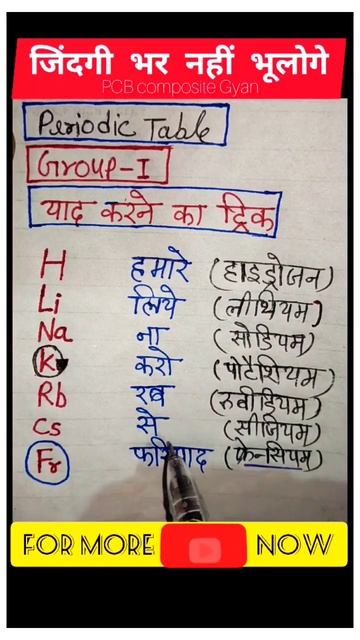 जिंदगी भर नहीं भूलोगे
PCB composite Gyan
Periodic Table
Group-I
याद करने का ट्रिक
H हमारे (हाइड्रोजन)
Li लिये (लीथियम)
Na ना (सोडियम)
K करो (पोटैशियम)
Rb रब (रुबीडियम)
Cs से (सीजियम)
Fr फरियाद (फ्रेन्सियम)
FOR MORE NOW